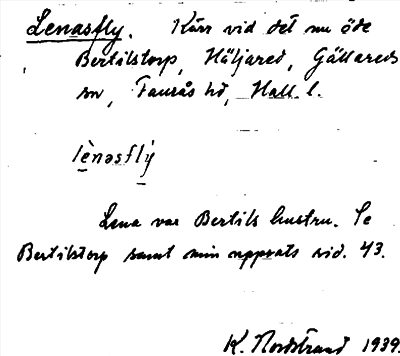 Lenasfly. Kärr vid det nu öde
Bertilstorp, Häljared, Gällareds
sn, Faurås hd, Hall. l.
lènasflý
Lena var Bertils hustru. Se
Bertilstorp samt min uppsats sid. 43.
K. Nordstrand 1939.